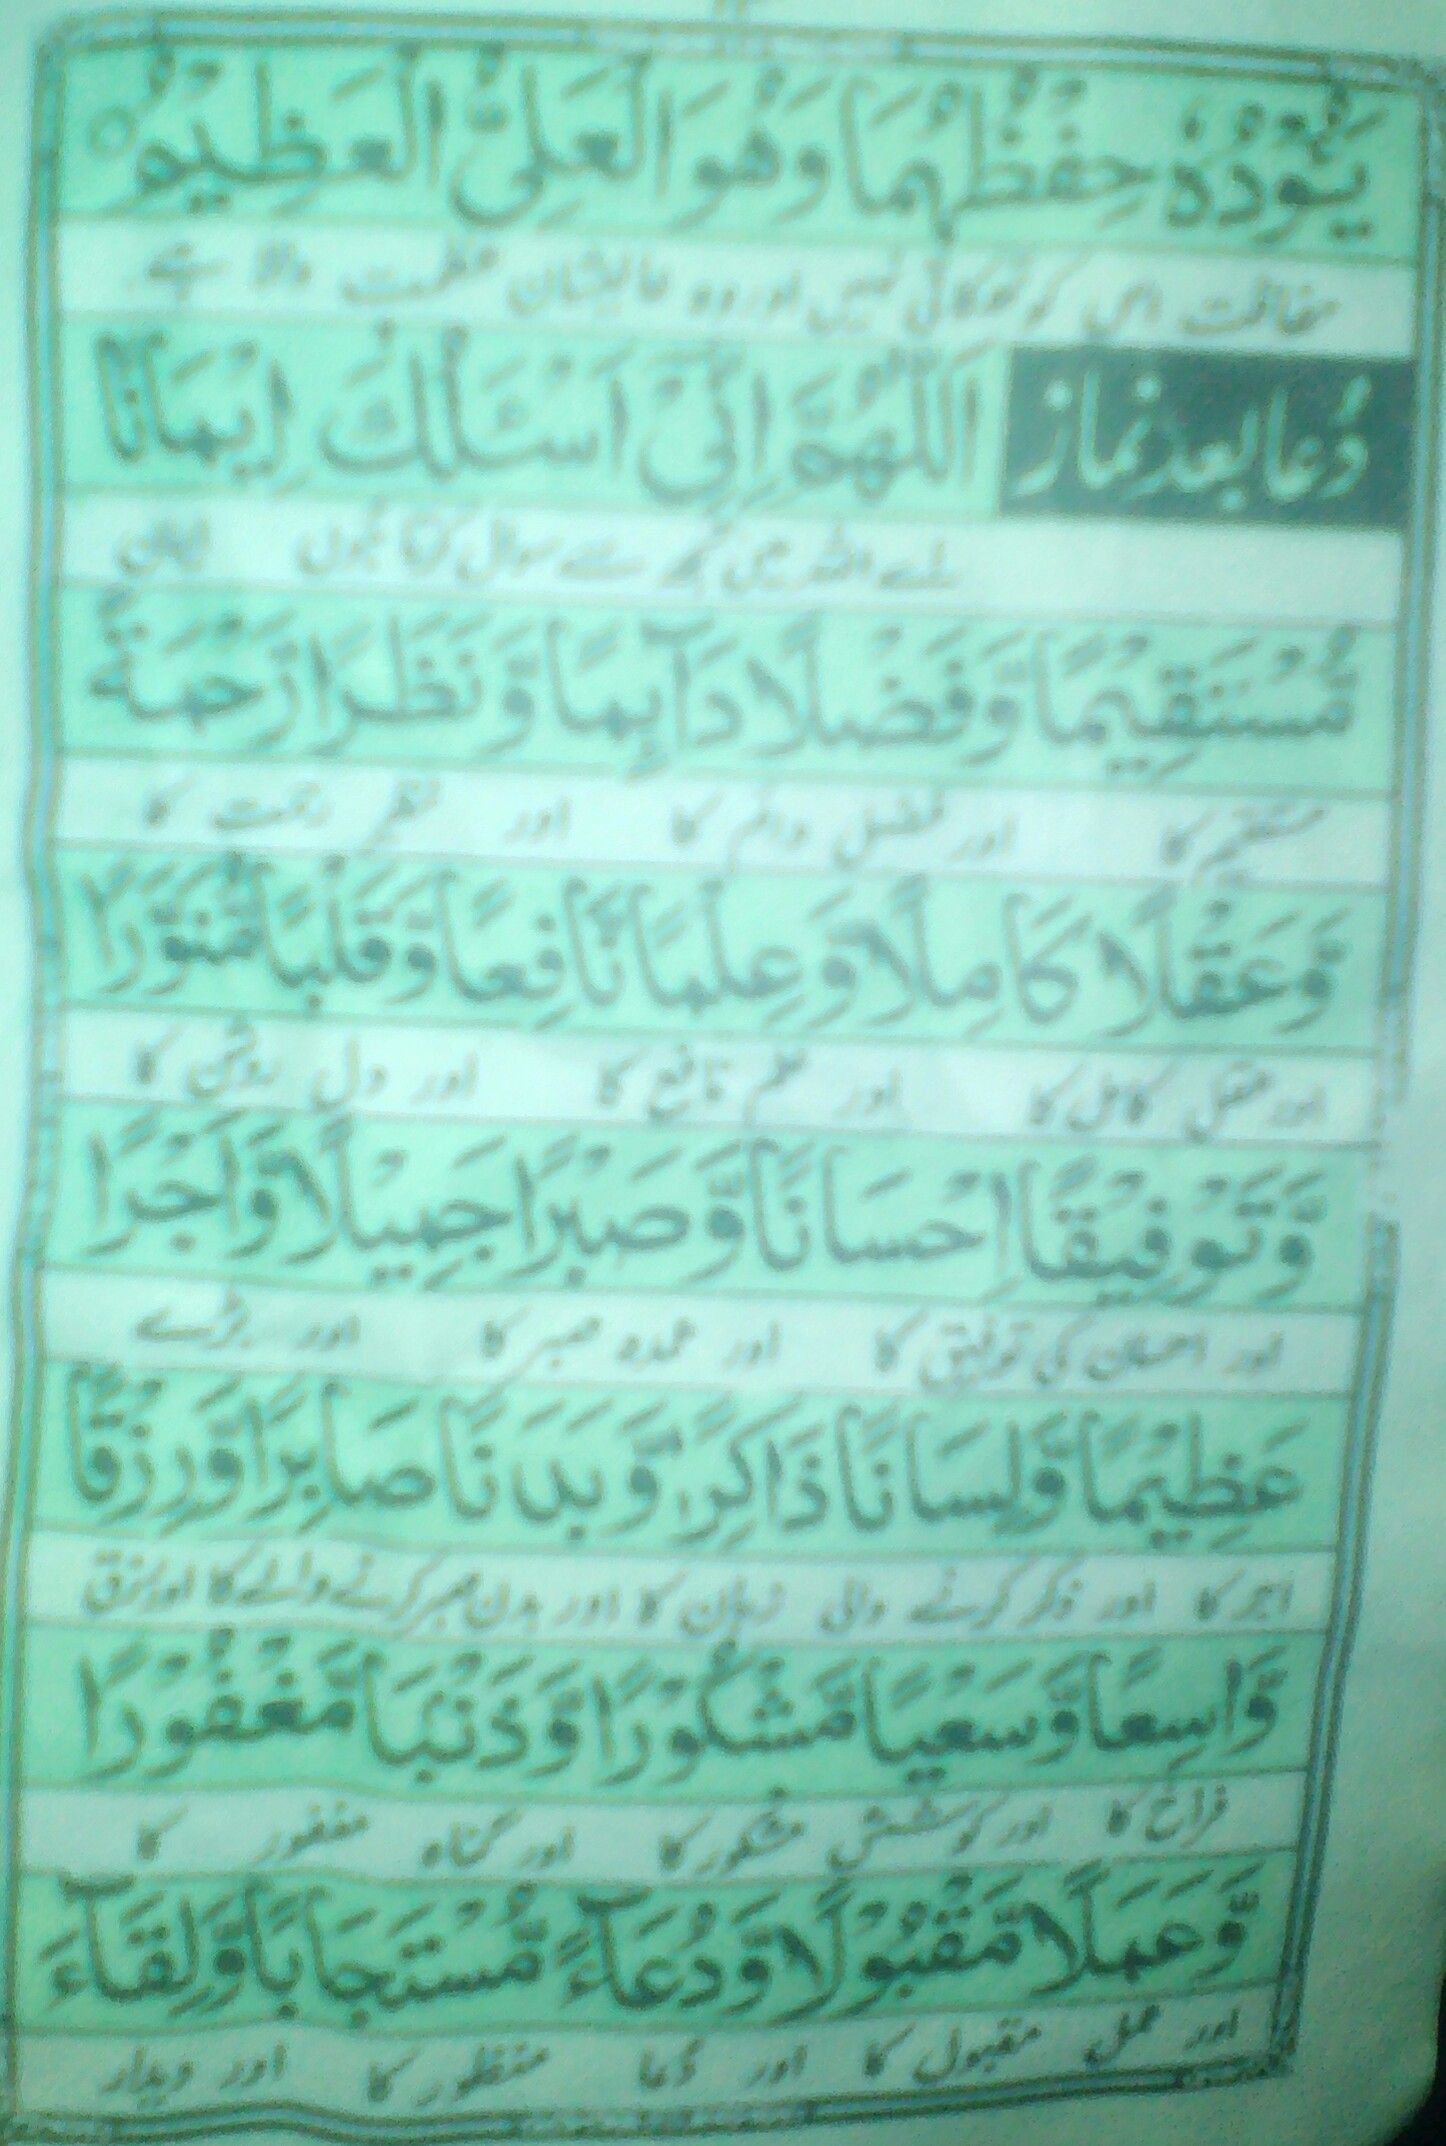 يَئُوْدُهٗ حِفْظُهُمَا وَهُوَ الْعَلِىُّ الْعَظِيْمُ ○
حفاظت اس کو تھکاتی نہیں اور وہ عالیشان عظمت والا ہے
دُعا بعد نماز اَللّٰهُمَّ اِنِّىْ اَسْئَلُكَ اِيْمَانًا
اے اللہ میں تجھ سے سوال کرتا ہوں ایمان
مُّسْتَقِيْمًا وَّفَضْلًا دَآئِمًا وَّنَظَرًا رَحْمَةً
مستقیم کا اور فضل دائم کا اور نظر رحمت کا
وَّعَقْلًا كَامِلًا وَّعِلْمًا نَّافِعًا وَّقَلْبًا مُّنَوَّرًا
اور عقل کامل کا اور علم نافع کا اور دل روشن کا
وَّتَوْفِيْقًا اِحْسَانًا وَّصَبْرًا جَمِيْلًا وَّاَجْرًا
اور احسان کی توفیق کا اور عمدہ صبر کا اور بڑے
عَظِيْمًا وَّلِسَانًا ذَاكِرًا وَّبَدَنًا صَابِرًا وَّرِزْقًا
اجر کا اور ذکر کرنے والی زبان کا اور بدن صبر کرنے والے کا اور رزق
وَّاسِعًا وَّسَعْيًا مَّشْكُوْرًا وَّذَنْبًا مَّغْفُوْرًا
فراخ کا اور کوشش مشکور کا اور گناہ مغفور کا
وَّعَمَلًا مَّقْبُوْلًا وَّدُعَآءً مُّسْتَجَابًا وَّلِقَآءَ
اور عمل مقبول کا اور دُعا منظور کا اور دیدار